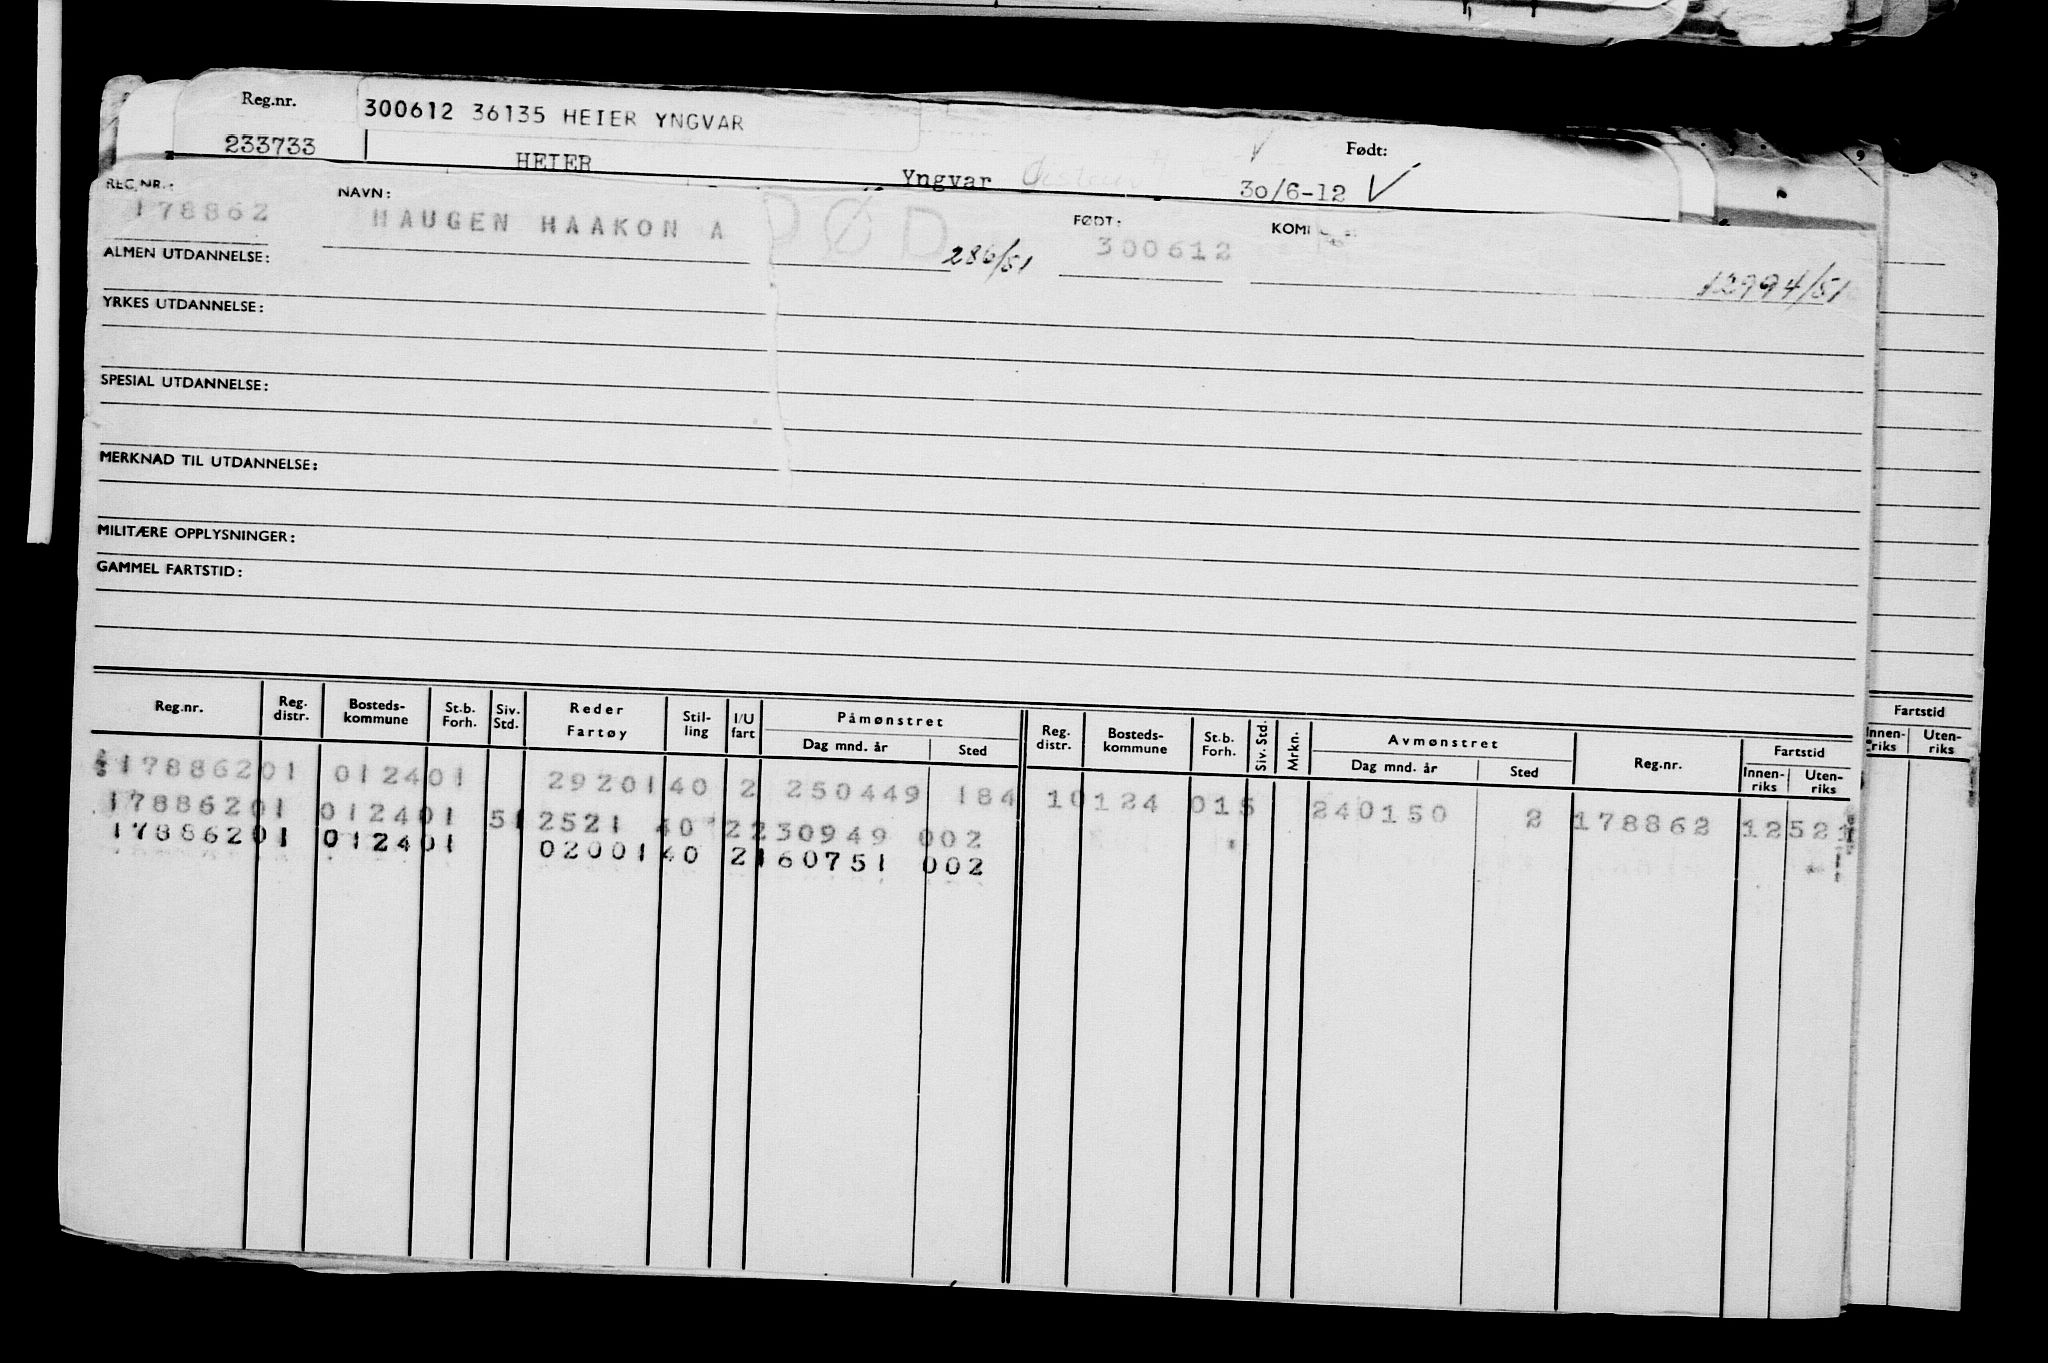 Reg.nr. 300612 36135 HEIER YNGVAR Født:
233733 HEIER Yngvar 30/6-12 V
REG.NR.: NAVN: FØDT: KOMM
178862 HAUGEN HAAKON A DØD 286/51 300612 12994/51
ALMEN UTDANNELSE:
YRKES UTDANNELSE:
SPESIAL UTDANNELSE:
MERKNAD TIL UTDANNELSE:
MILITÆRE OPPLYSNINGER:
GAMMEL FARTSTID:
Reg.nr. Reg. distr. Bosteds-kommune St.b. Forh. Siv. Std. Reder Fartøy Stil-ling I/U fart Påmønstret Dag mnd. år Sted Reg. distr. Bosteds-kommune St.b. Forh. Siv. Std. Mrkn. Avmønstret Dag mnd. år Sted Reg.nr. Fartstid Innen-riks Uten-riks
Fartstid
Innen-riks Uten-riks
17886201 012401 2920140 2 250449 184 10124 015 240150 2 178862 12521
17886201 012401 512521 40 2230949 002
17886201 012401 0200140 2160751 002